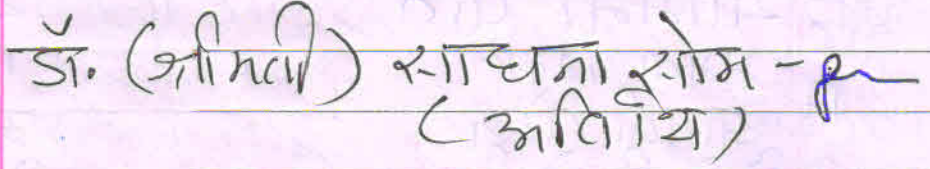 डॉ. (श्रीमती) साधना सोम -
(अतिथि)